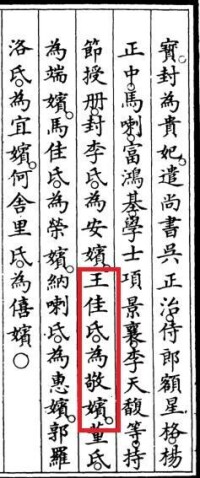 寶。封為貴妃。遣尚書吳正治。侍郎額星格。楊
正中。馬喇。富鴻基。學士項景襄。李天馥等。持
節授冊。封李氏為安嬪。王佳氏為敬嬪。董氏
為端嬪。馬佳氏為榮嬪。納喇氏為惠嬪。郭羅
洛氏為宜嬪。何舍里氏為僖嬪○